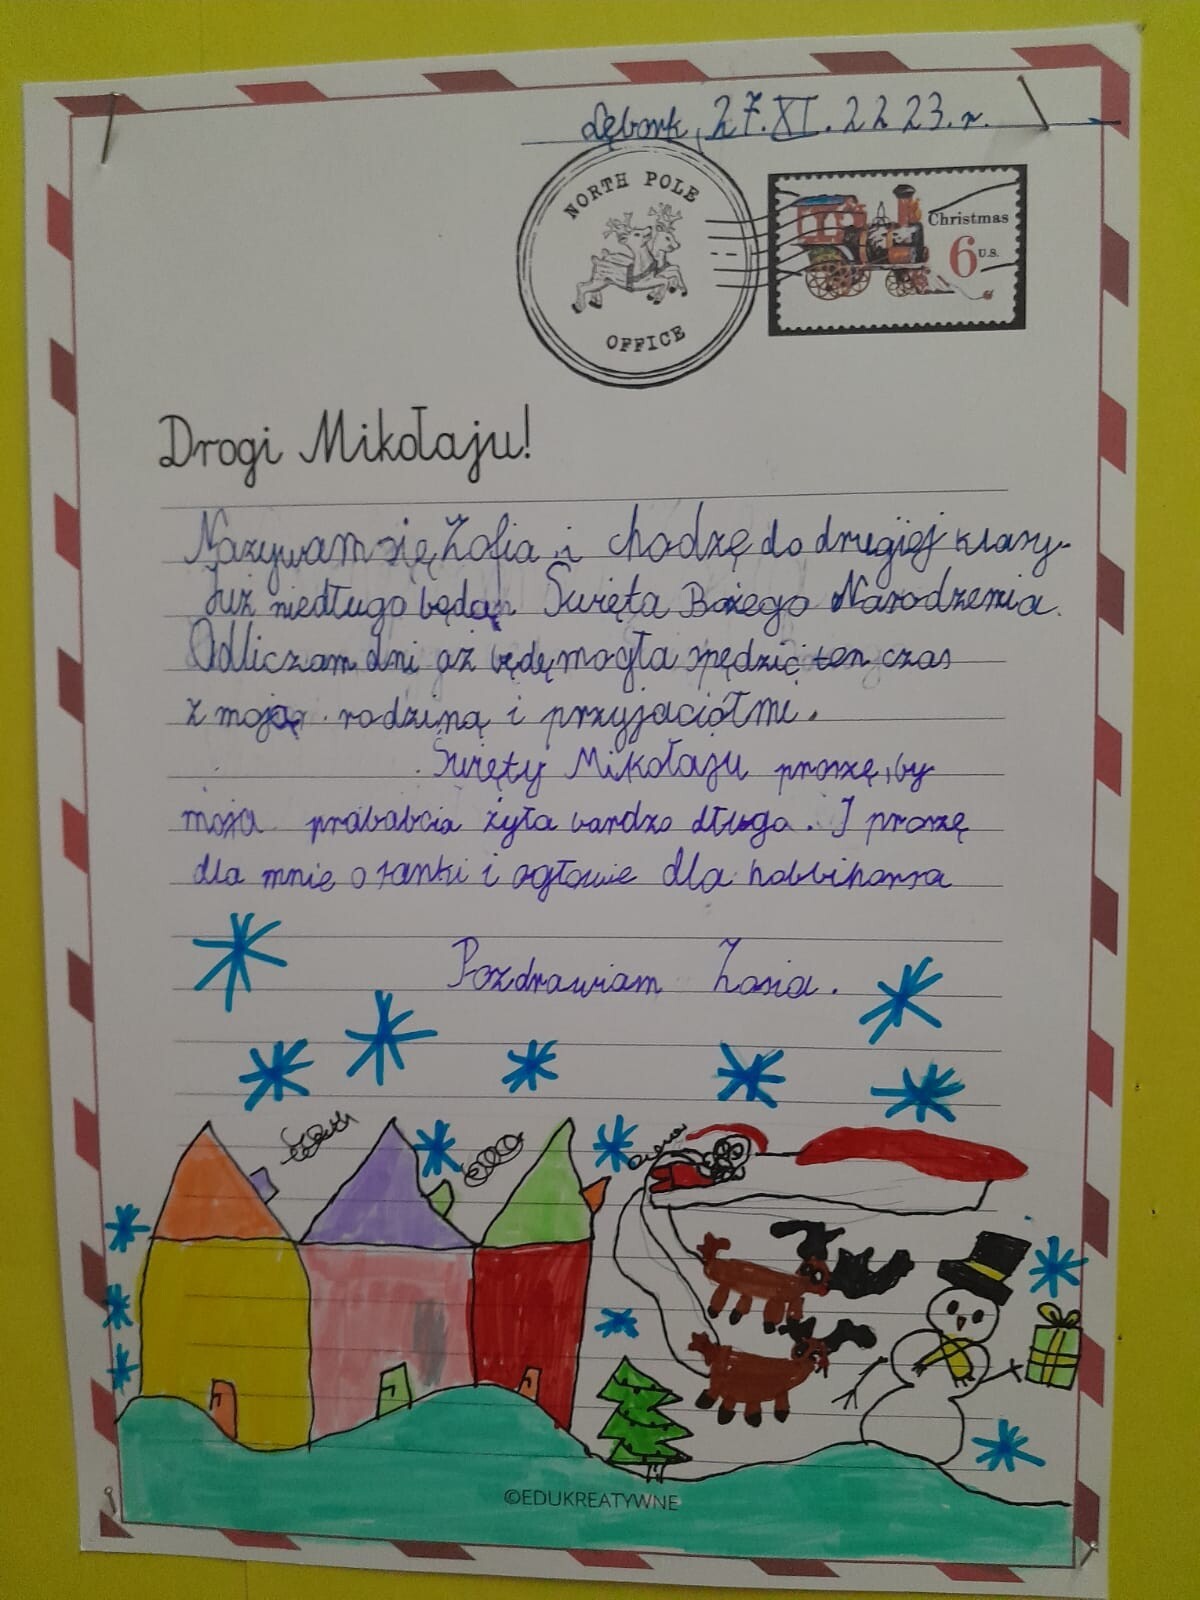 Lębork, 27.XI.2223.r.
NORTH POLE
OFFICE
Christmas
6 U.S.
Drogi Mikołaju!
Nazywam się Zofia i chodzę do drugiej klasy.
Już niedługo będą Święta Bożego Narodzenia.
Odliczam dni aż będę mogła spędzić ten czas
z moją rodziną i przyjaciółmi.
Święty Mikołaju proszę, by
moja prababcia żyła bardzo długo. I proszę
dla mnie o sanki i ogłowie dla hobbihorsa
Pozdrawiam Zosia.
©EDUKREATYWNE